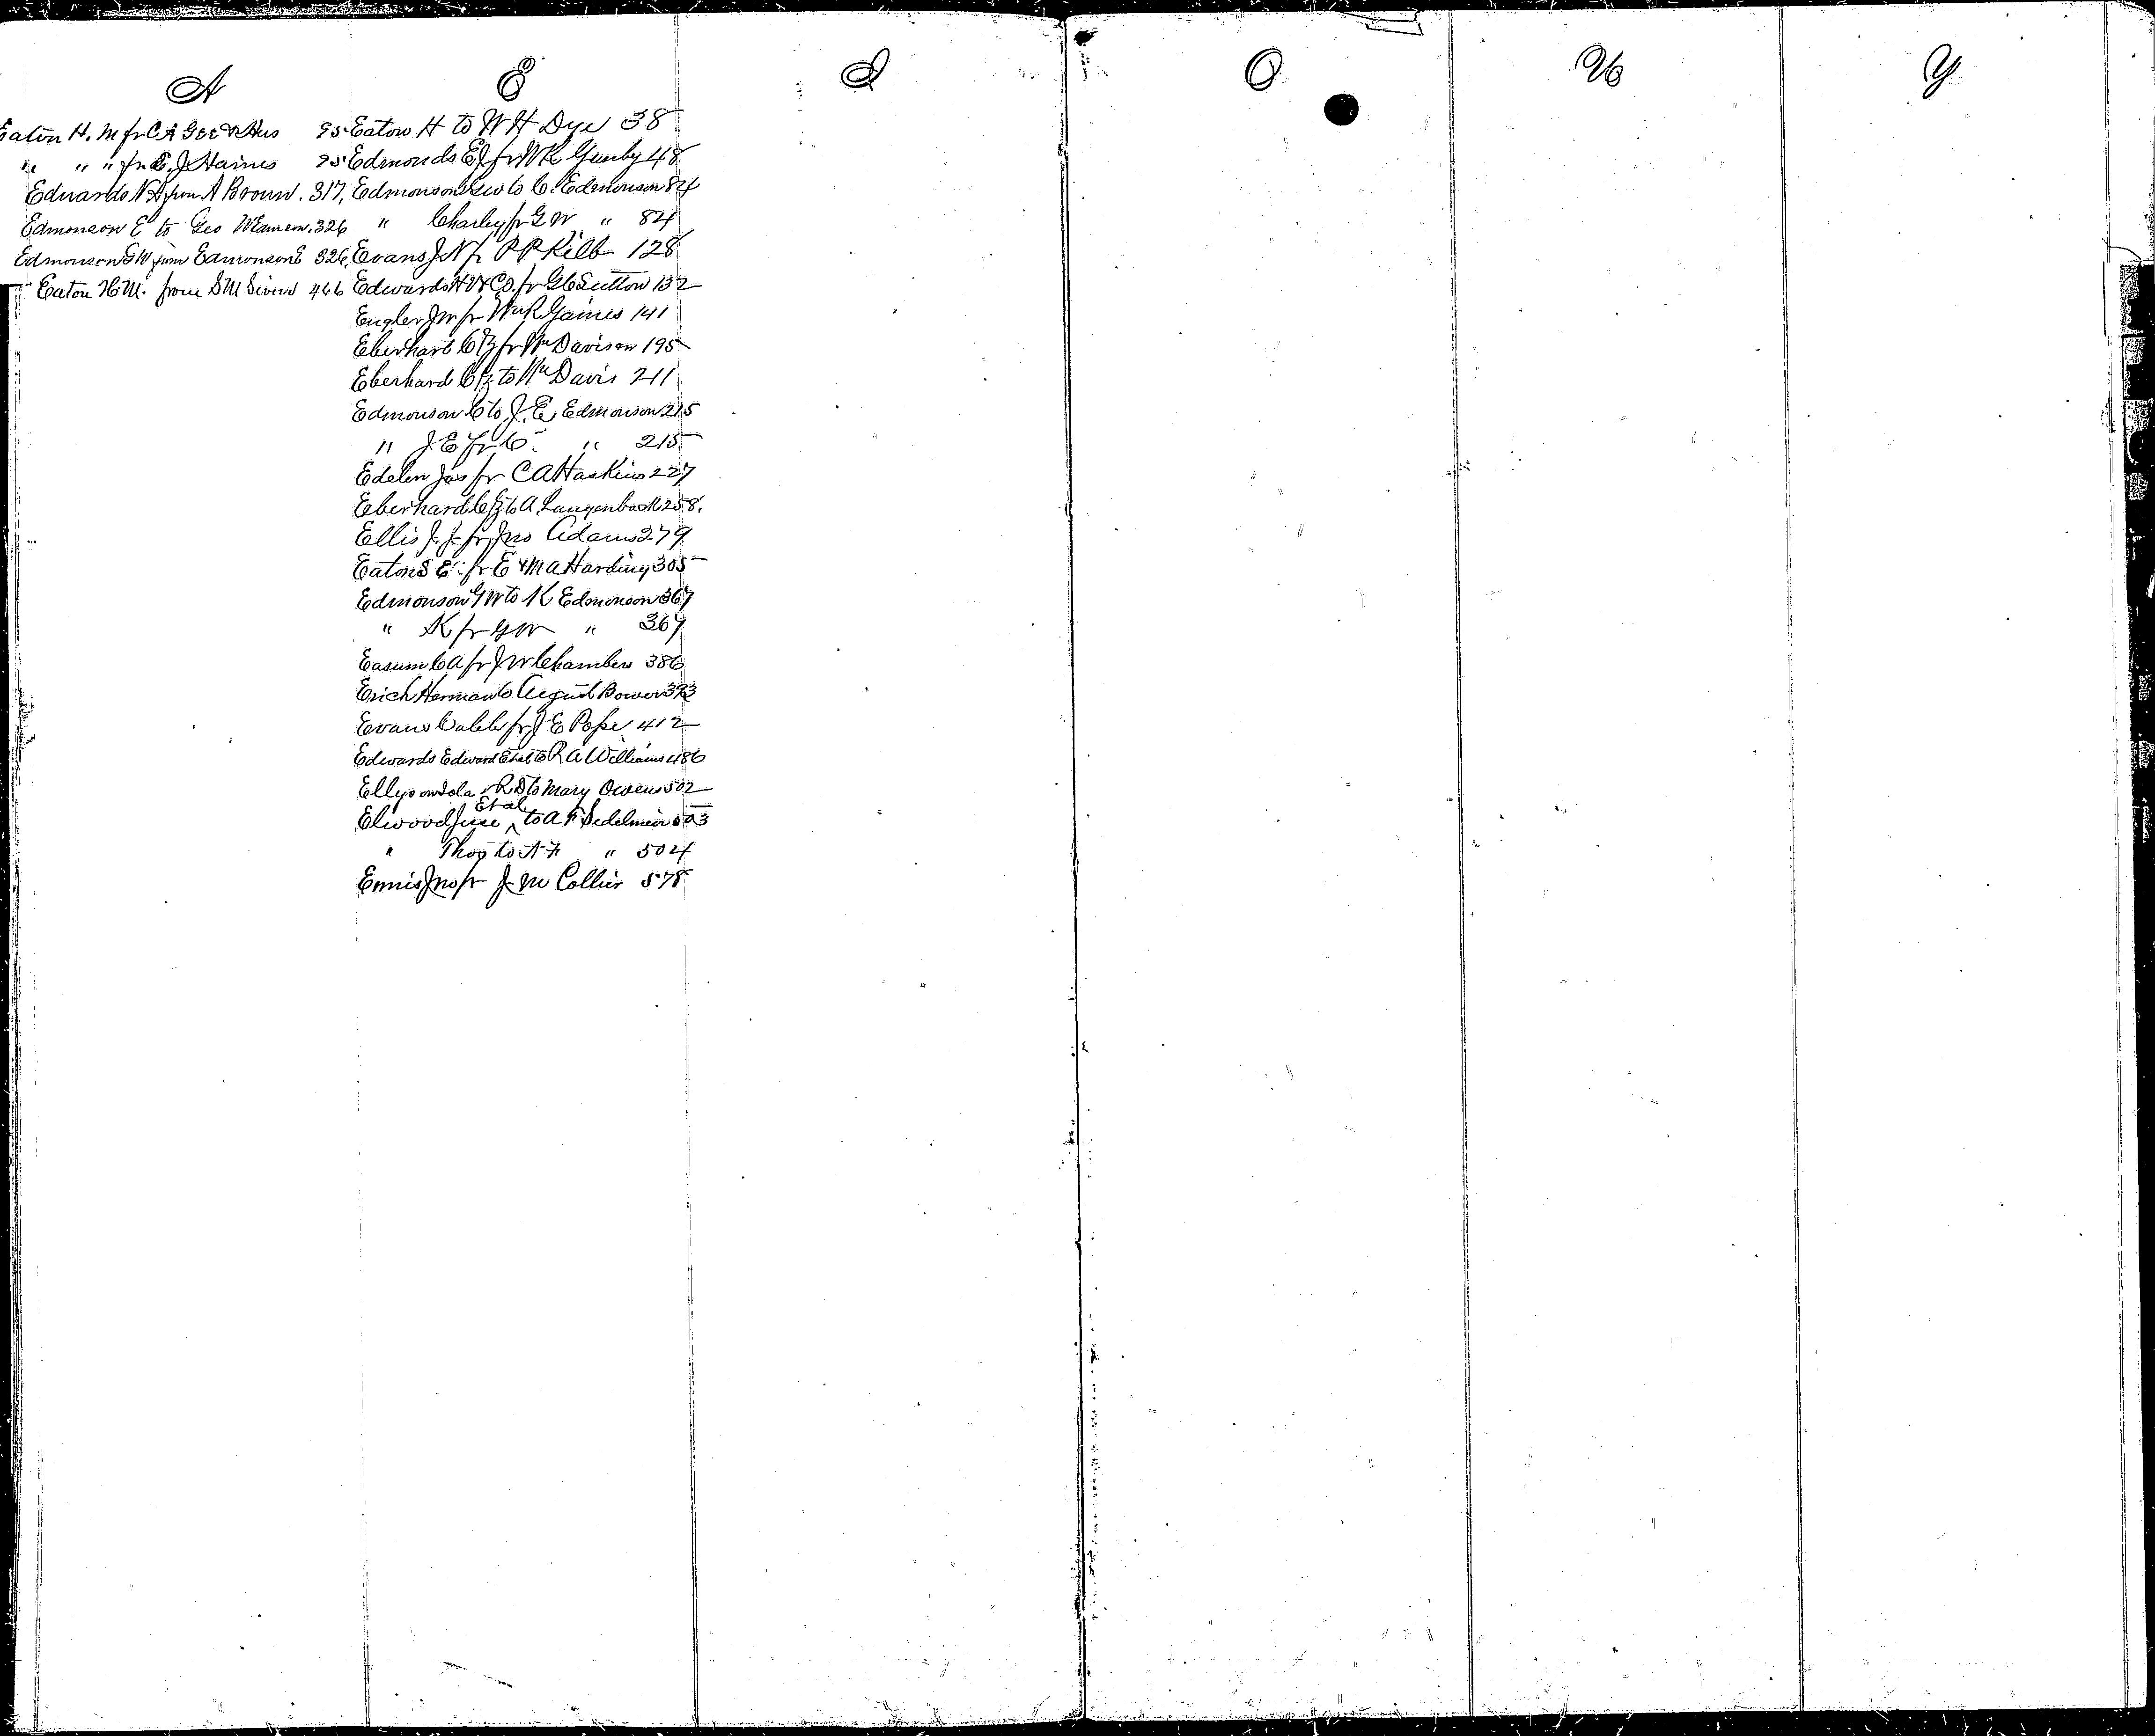 A
Eaton H. M fr C A Gee & Hus 95
" " " fr C. J Haines 95
Edwards N A from A Brown. 317,
Edmonson E to Geo 326
Edmonson G W from Edmonson E 326,
Eaton H. M. from S M 466
E
Eaton H to W H Dye 38
Edmonds E J fr W R Gunby 48
Edmonson Geo to C. Edmonson 84
" Charley fr G W " 84
Evans J N fr P P Kelb 128
Edwards H W & Co. fr G C Sutton 132
Engler J W fr Wm R Gaines 141
Eberhart C G fr Wm Davison 195
Eberhard C G to Wm Davis 211
Edmonson C to J. E. Edmonson 215
" J E fr C. " 215
Edelen Jas fr C A Haskins 227
Eberhard C G to A. Langenback 258.
Ellis J. J. fr Jno Adams 279
Eaton S E. fr E & M A Harding 305
Edmonson G W to K Edmonson 367
" K fr G W " 367
Easum C A fr J W Chambers 386
Erich Herman to August Bower 393
Evans Caleb fr J E Pope 412
Edwards Edward Etal to R A Williams 486
Ellyson Lola & R D to Mary Owens 502
Elwood Etal to A F Sedelmeir 503
" Thos to A F " 504
Ennis Jno fr J. M Collier 578
I
O
U
Y